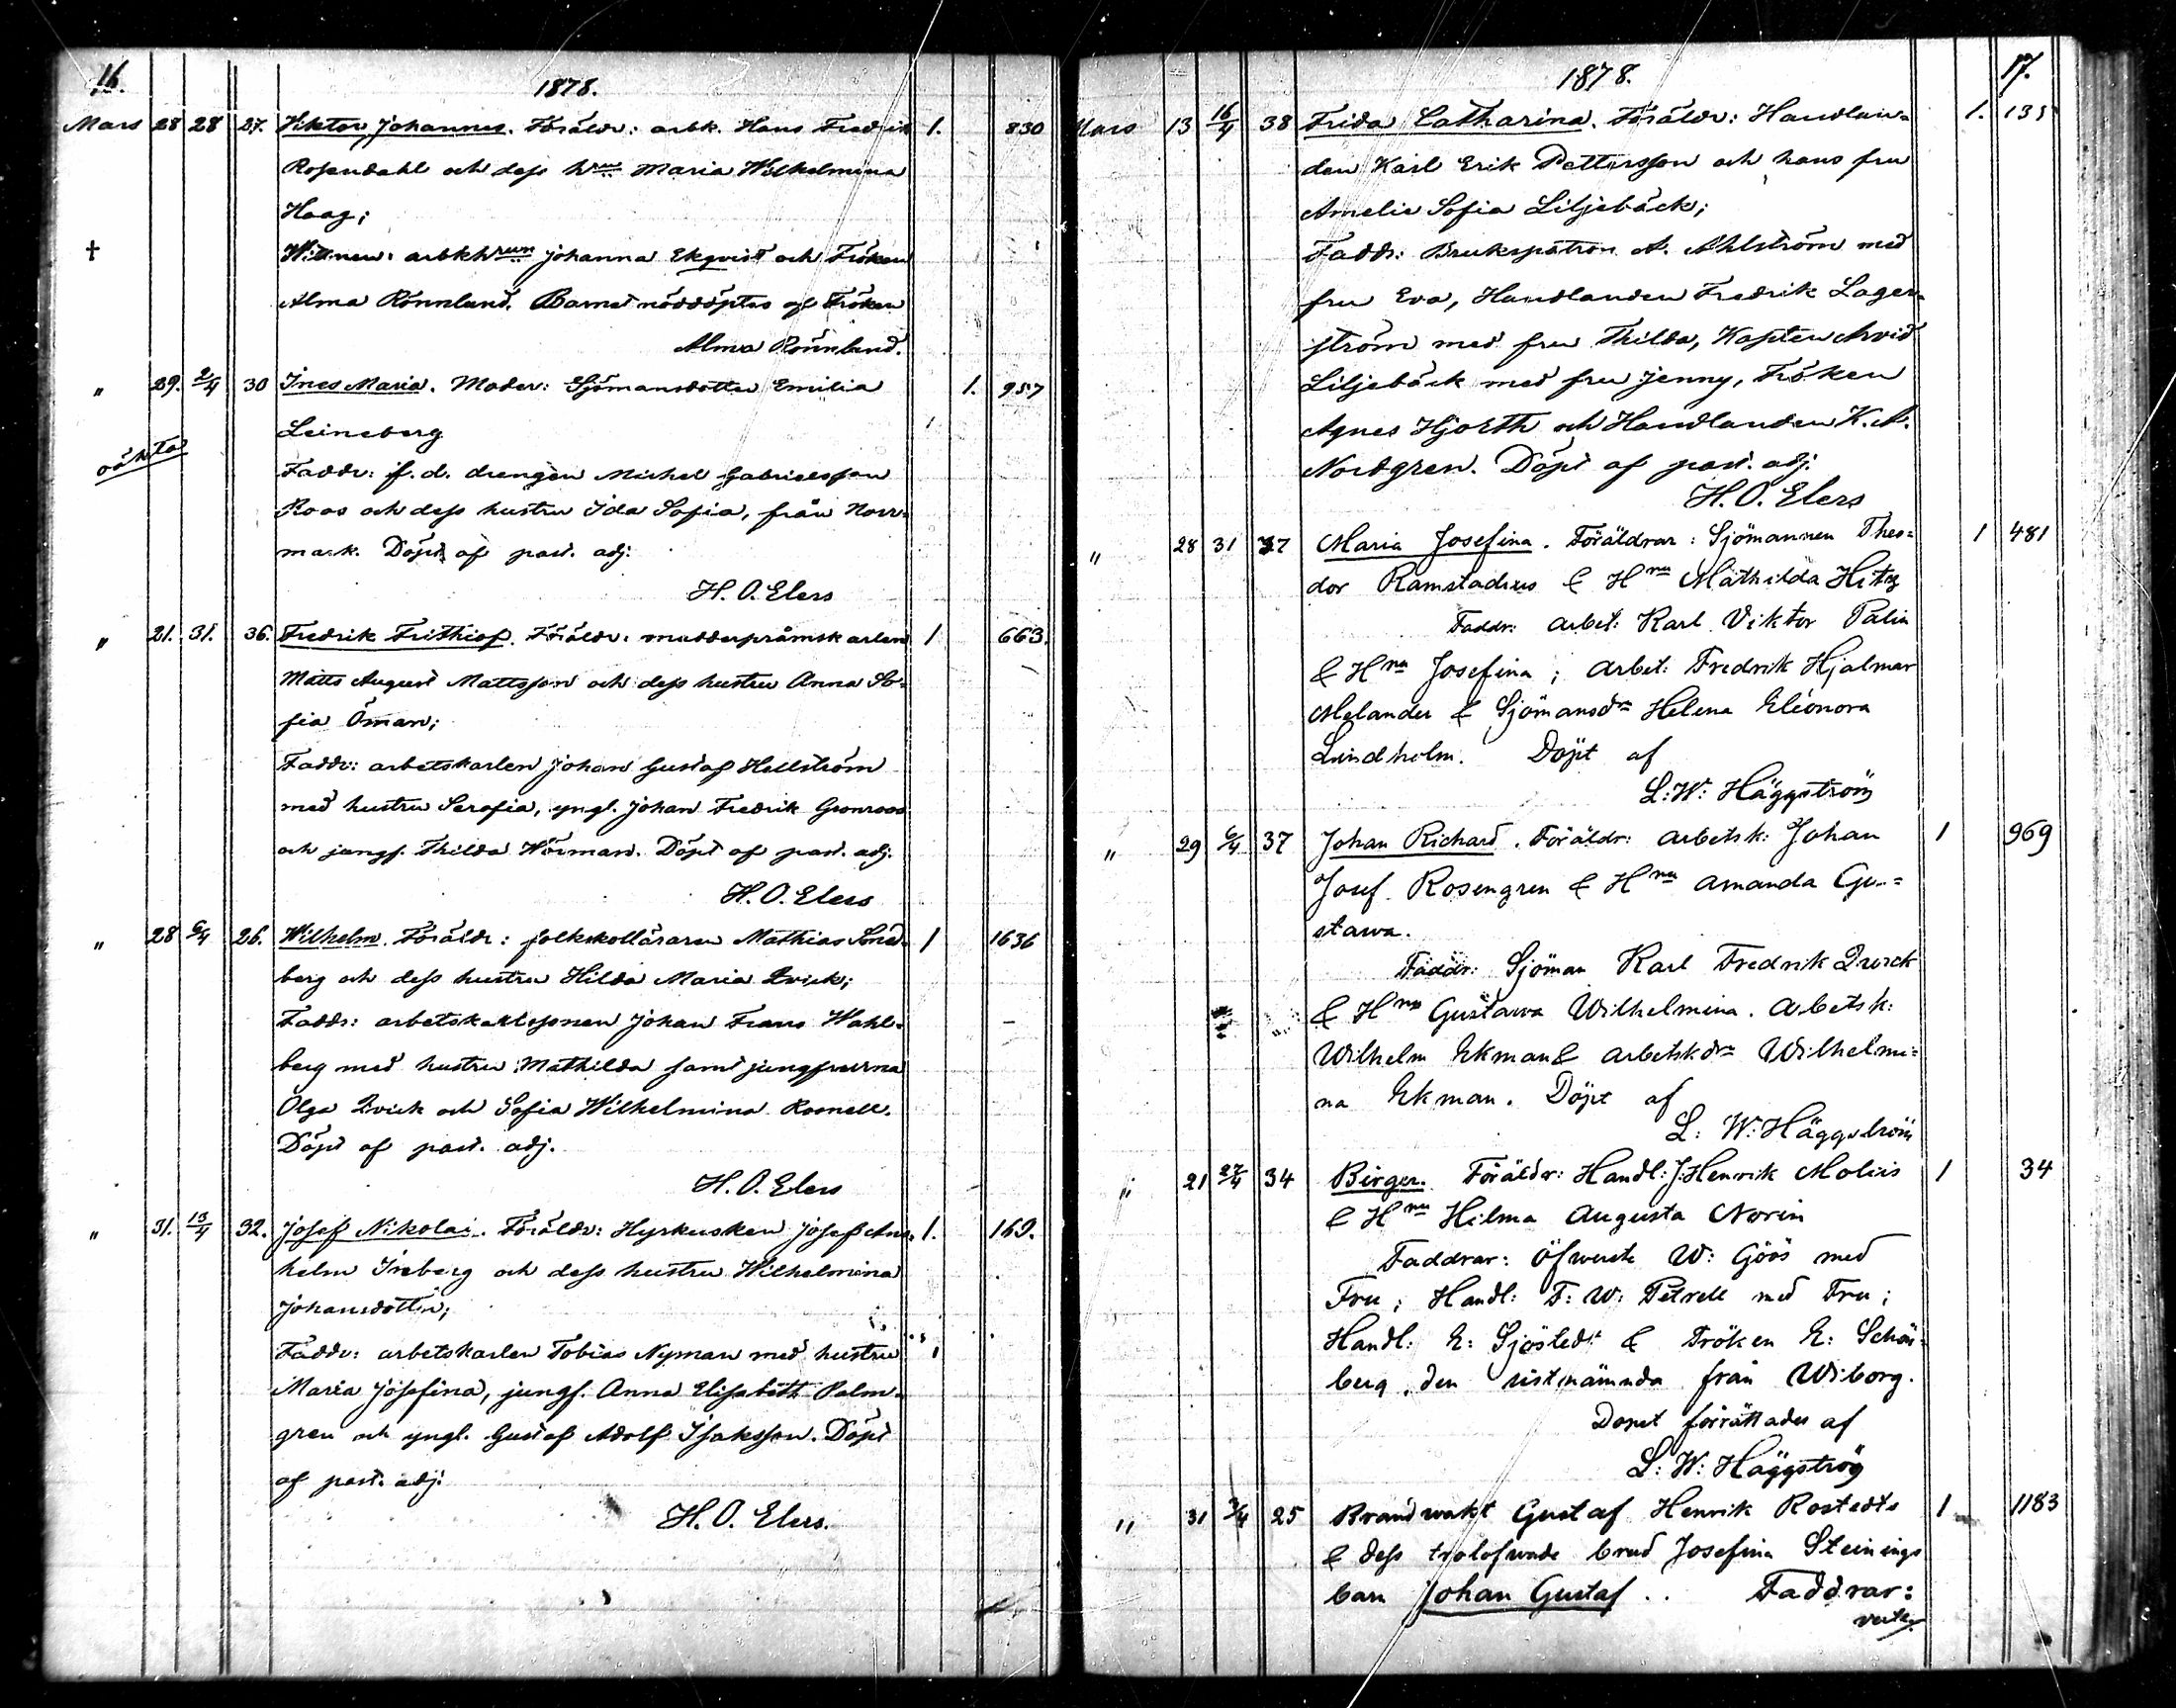 16.
1878.
Mars 28 28 27. Viktor Johannes. Föräldr: arbk. Hans Fredrik 1. 830
Rosendahl och dess hru Maria Wilhelmina
Haag;
† Wittnen: arbkhrun Johanna Ekqvist och Fröken
Alma Rönnlund. Barnet nöddöptes af Fröken
Alma Rönnlund.
" 29. 2/4 30 Ines Maria. Moder: Sjömansdotter Emilia 1. 957
Leineberg
oäkta
Faddr: f. d. drengen Michel Gabrielsson
Roos och dess hustru Ida Sofia, från Norr=
mark. Döpt af past. adj.
H. O. Elers
" 21. 31. 36. Fredrik Frithiof. Föräldr: mudderpråmskarlen 1 663.
Matts August Mattsson och dess hustru Anna So=
fia Öman;
Faddr: arbetskarlen Johan Gustaf Hellström
med hustru Serafia, yngl. Johan Fredrik Grönroos
och jungf. Thilda Nörman. Döpt af past. adj.
H. O. Elers
" 28 6/4 26. Wilhelm. Föräldr: folkskolläraren Mathias 1 1636
berg och dess hustru Hilda Maria Qvick;
Faddr: arbetskarlssonen Johan Frans Wahl=
berg med hustru Mathilda samt jungfrurna
Olga Qvick och Sofia Wilhelmina Rosnell.
Döpt af past. adj.
H. O. Elers
" 31. 13/4 32. Josef Nikolai. Föräldr: Hyrkusken Josef An= 1. 169.
helm Ineberg och dess hustru Wilhelmina
Johansdotter;
Faddr: arbetskarlen Tobias Nyman med hustru
Maria Josefina, jungf. Anna Elisabeth Palm=
gren och yngl. Gustaf Adolf Isaksson. Döpt
af past. adj.
H. O. Elers.
17.
1878.
Mars 13 16/4 38 Frida Catharina. Föräldr: Handlan= 1. 135
den Karl Erik Pettersson och hans fru
Amelie Sofia Liljebäck;
Faddr: Brukspatron A. Ahlström med
fru Eva, Handlanden Fredrik Lager=
ström med fru Thilda, Kapten Arvid
Liljebäck med fru Jenny, Fröken
Agnes Hjorth och Handlanden K. A.
Nordgren. Döpt af past. adj.
H. O. Elers
" 28 31 37 Maria Josefina. Föräldrar: Sjömannen Theo= 1 481
dor Ramstadius & Hru Mathilda
Faddr: arbet: Karl Viktor Palin
& Hru Josefina; arbet: Fredrik Hjalmar
Melander & Sjömansdr Helena Eleonora
Lindholm. Döpt af
L: W: Häggström
" 29 6/4 37 Johan Richard. Föräldr: arbetsk: Johan 1 969
Josef Rosengren & Hru Amanda Gu=
stawa.
Faddr: Sjöman Karl Fredrik Qveck
& Hru Gustawa Wilhelmina. Arbetsk:
Wilhelm Ekman & arbetskdr Wilhelmi=
na Ekman. Döpt af
L: W: Häggström
" 21 27/4 34 Birger. Föräldr: Handl: J: Henrik Molin 1 34
& Hru Hilma Augusta Norin
Faddrar: Öfwerste W: Göös med
Fru; Handl: F: W: Petrell med Fru;
Handl: E: Sjöstedt & Fröken E: Schön=
berg, den sistnämnda från Wiborg.
Dopet förrättades af
L: W: Häggström
" 31 3/4 25 Brandwakt Gustaf Henrik Rostedts 1 1183
& dess trolofwade brud Josefina Steinings
barn Johan Gustaf.. Faddrar:
verte.